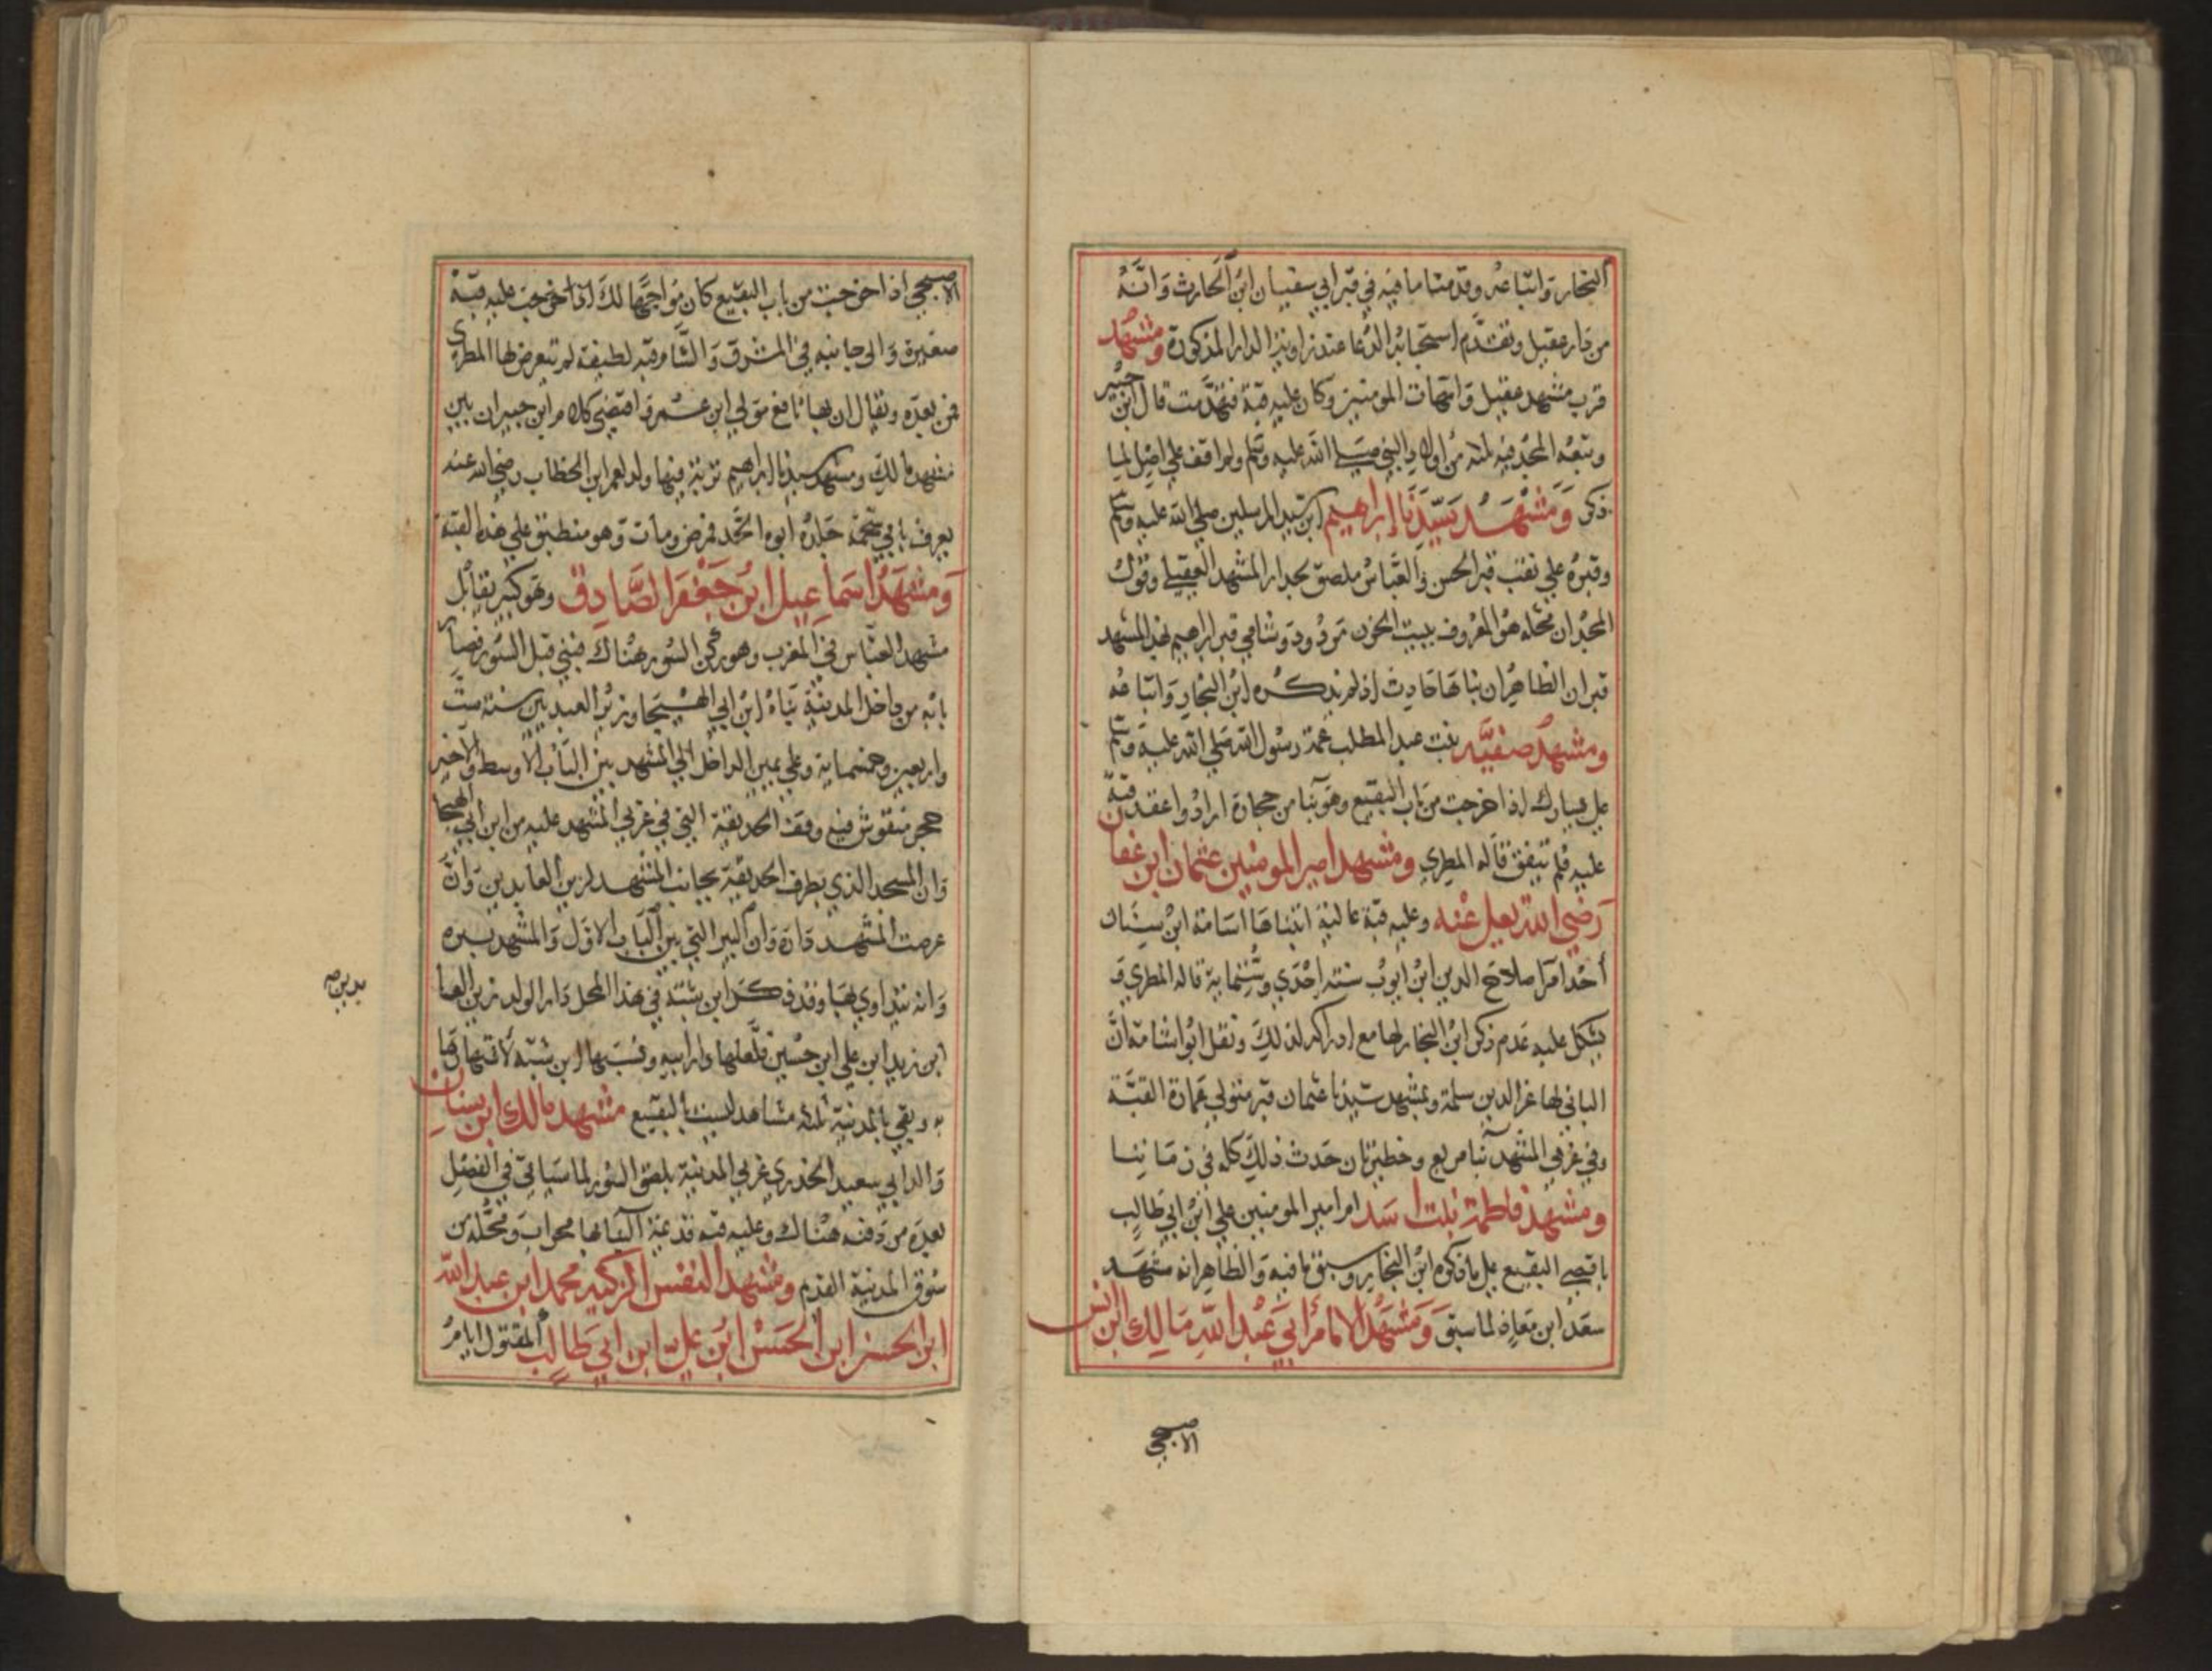 النجار واتباعه وقدمنا ما فيه في قبر ابي سفيان ابن الحارث وانه
من دار عقيل وتقدم استجابة الدعا عند زاوية الدار المذكورة ومشهد
قرب مشهد عقيل وامهات المومنين وكان عليه قبة فتهدمت قال ابن جبير
وتبعه المجد فيه ثلثه من اولاد النبي صلى الله عليه وسلم ولم اقف على اصل لما
ذكر ومشهد سيدنا ابراهيم ابن سيد المرسلين صلى الله عليه وسلم
وقبره على نعت قبر الحسن والعباس ملصق بجدار المشهد القبلي وقول
المجد ان محله هو المعروف ببيت الحزن مردود وشامي قبر ابراهيم بهذا المشهد
قبران الظاهر ان بناها حادث اذ لم يذكره ابن النجار واتباعه
ومشهد صفيه بنت عبد المطلب عمة رسول الله صلى الله عليه وسلم
على يسارك اذا خرجت من باب البقيع وهو بنا من حجارة ارادوا عقد قبة
عليه فلم يتفق قاله المطري ومشهد امير المومنين عثمان ابن عفان
رضي الله تعلى عنه وعليه قبة عالية ابتناها اسامة ابن سنان
احد امرا صلاح الدين ابن ايوب سنة احدى وستماية قاله المطري و
يشكل عليه عدم ذكر ابن النجار لها مع ادراكه لذلك ونقل ابوا شامة ان
الباني لها عز الدين سلمة وبمشهد سيدنا عثمان قبر متولي عمارة القبة
وفي غربي المشهد بنا مربع وحظيرتان حدث ذلك كله في زماننا
ومشهد فاطمة بنت اسد ام امير المومنين علي ابن ابي طالب
باقصى البقيع على ما ذكره ابن النجار وسبق ما فيه والظاهر انه مشهد
سعد ابن معاذ لما سبق ومشهد الامام ابي عبد الله مالك ابن انس
الاصبحي
الاصبحي اذا خرجت من باب البقيع كان مواجها لك اذا خرجت عليه قبة
صغيرة والى جانبه في المشرق والشام قبة لطيفة لم يتعرض لها المطري
فمن بعده ويقال ان بها نافع مولى ابن عمر واقتضى كلام ابن جبير ان بين
مشهد مالك ومشهد سيدنا ابراهيم تربة فيها ولد لعمر ابن الخطاب رضي الله عنه
يعرف بابي شحمة جلده ابوه الحد فمرض ومات وهو منطبق على هذه القبة
ومشهد اسماعيل ابن جعفر الصادق وهو كبير يقابل
مشهد العباس في المغرب وهو ركن السور هناك فبني قبل السور فصار
بابه من داخل المدينة بناه ابن ابي الهيجا وزير العبديين سنة ست
واربعين وخمسماية وعلى يمين الداخل الى المشهد بين الباب الاوسط والاخير
حجر منقوش فيه وقف الحديقة التي في غربي المشهد عليه من ابن ابي الهيجا
وان المسجد الذي بطرف الحديقة بجانب المشهد لزين العابدين وان
عرصت المشهد داره وان البير التي بين الباب الاول والمشهد بيره
وانه يتداوي بها وقد ذكر ابن شبة في هذا المحل دار الولد زين العا
بدين صح
ابن زيد ابن علي ابن حسين فلعلها دار ابيه ونسبها ابن شبة لابنها لها
به وبقي بالمدينة ثلثه مشاهد ليست بالبقيع مشهد مالك ابن سنان
والد ابي سعيد الخدري غربي المدينة بلصق السور لما سياتي في الفصل
بعده من دفنه هناك وعليه قبة قديمة البنا بها محراب ومحله من
سوق المدينة القديم ومشهد النفس الزكيه محمد ابن عبد الله
ابن الحسن ابن الحسن ابن علي ابن ابي طالب المقتول ايام